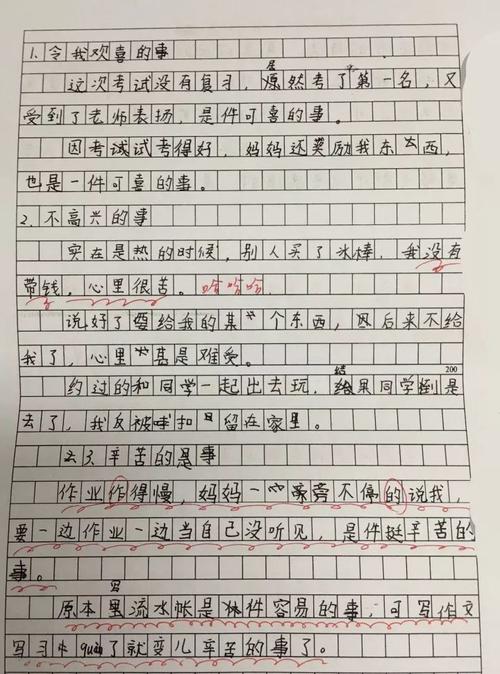 1.令我欢喜的事
这次考试没有复习，居然考了第一名，又
受到了老师表扬，是件可喜的事。
因考试试考得好，妈妈还奖励我东西，
也是一件可喜的事。
2.不高兴的事
实在是热的时候，别人买了冰棒，我没有
带钱，心里很苦。哈哈哈
说好了要给我的某个东西，因后来不给
我了，心里甚是难受。
200
约过的和同学一起出去玩，结果同学倒是
去了，我反被留在家里。
辛苦的是事
作业作得慢，妈妈一旁不停的说我，
要一边作业一边当自己没听见，是件挺辛苦的
事。
原本写流水帐是件容易的事，可写作文
写习quan了就变儿辛苦的事了。